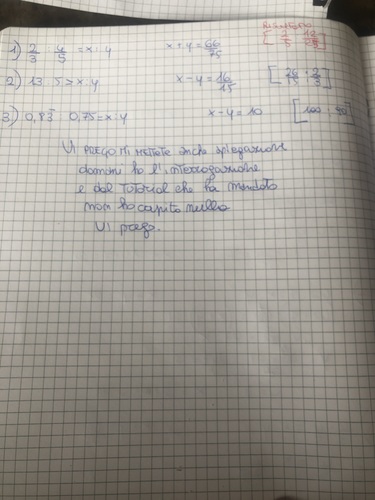 RISULTATO
1) 2/3 : 4/5 = x : y x + y = 66/75 [2/5
2) 13 : 5 = x : y x - y = 16/15 [26/15 : 2/3]
3) 0,83̅ : 0,75 = x : y x - y = 10 [100 : 90]
Vi PREGO Mi mettete anche spiegazione
domani ho l'interrogazione
e dal Tutorial che ha mandato
non ho capito nulla
Vi prego.